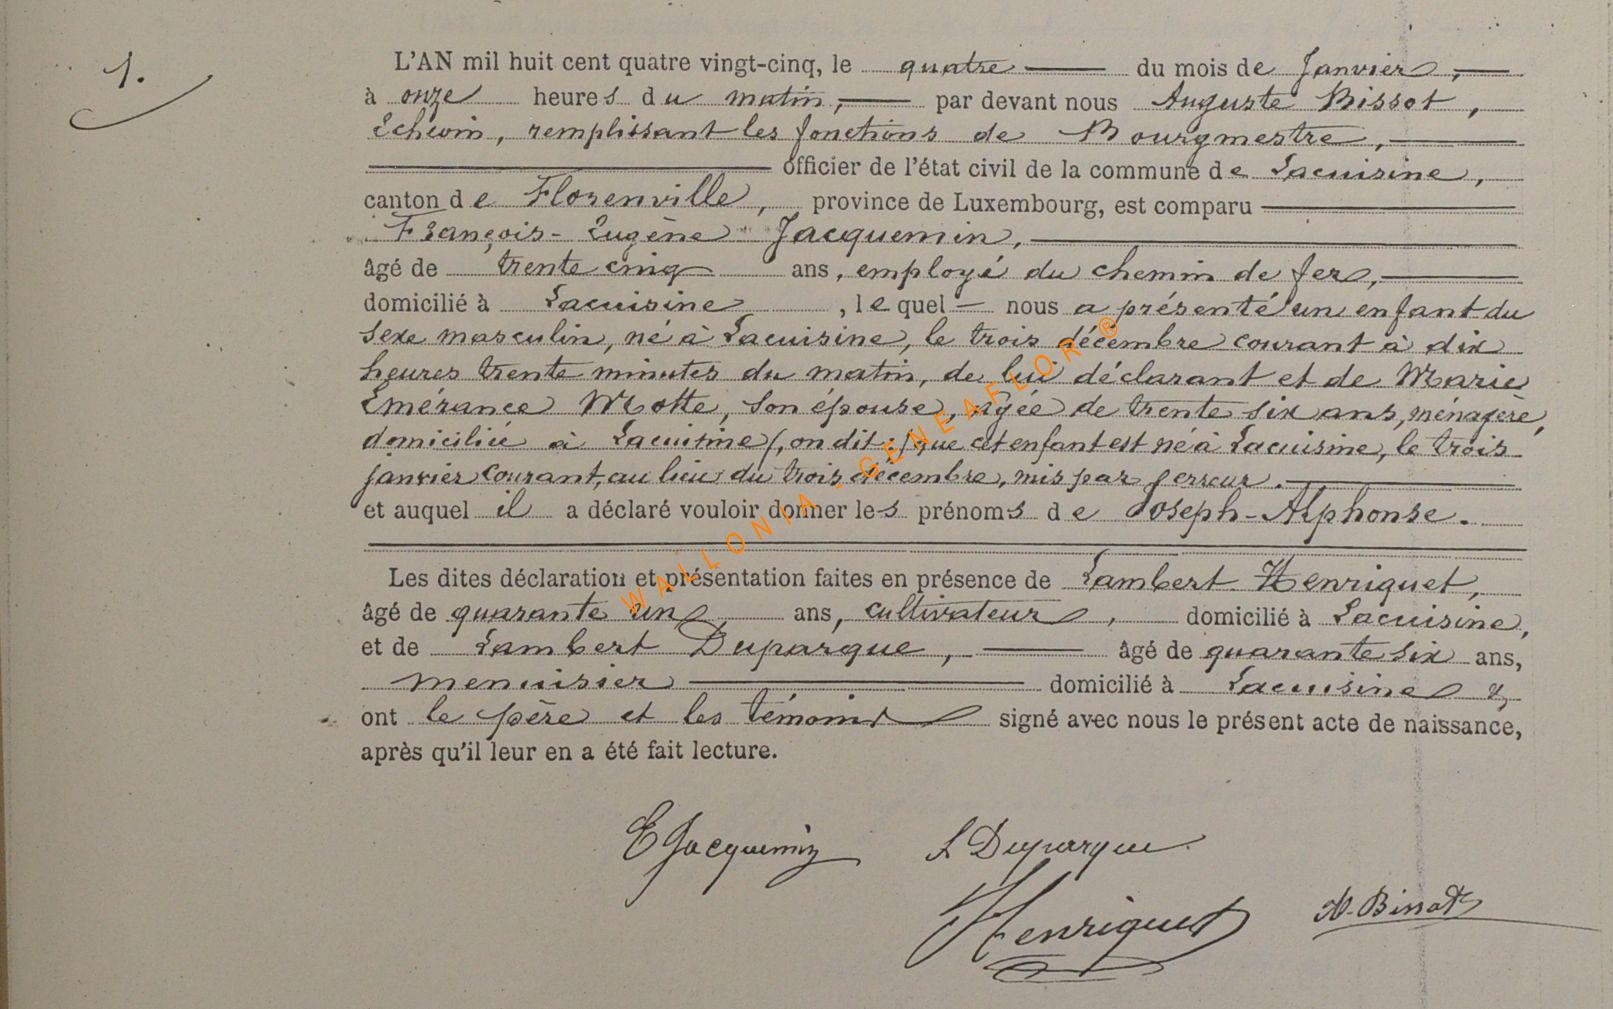 1.
L'AN mil huit cent quatre vingt-cinq, le quatre du mois de Janvier,
à onze heures du matin, par devant nous Auguste Bissot,
Echevin, remplissant les fonctions de Bourgmestre,
officier de l'état civil de la commune de Lacuisine,
canton de Florenville, province de Luxembourg, est comparu
François-Eugène Jacquemin,
âgé de trente cinq ans, employé du chemin de fer,
domicilié à Lacuisine, lequel nous a présenté un enfant du
sexe masculin, né à Lacuisine, le trois décembre courant à dix
heures trente minutes du matin, de lui déclarant et de Marie
Emérance Motte, son épouse, agée de trente six ans, ménagère,
domiciliée à Lacuisine (, on dit :) que cet enfant est né à Lacuisine, le trois
janvier courant, au lieu du trois décembre, mis par erreur.
et auquel il a déclaré vouloir donner les prénoms de Joseph-Alphonse.
Les dites déclaration et présentation faites en présence de Lambert Henriquet,
âgé de quarante un ans, cultivateur, domicilié à Lacuisine,
et de Lambert Duparque, âgé de quarante six ans,
menuisier domicilié à Lacuisine &
ont le père et les témoins signé avec nous le présent acte de naissance,
après qu'il leur en a été fait lecture.
E Jacquemin L Duparque
Henriquet A. Bissot
WALLONIA - GENEAFLOR ®